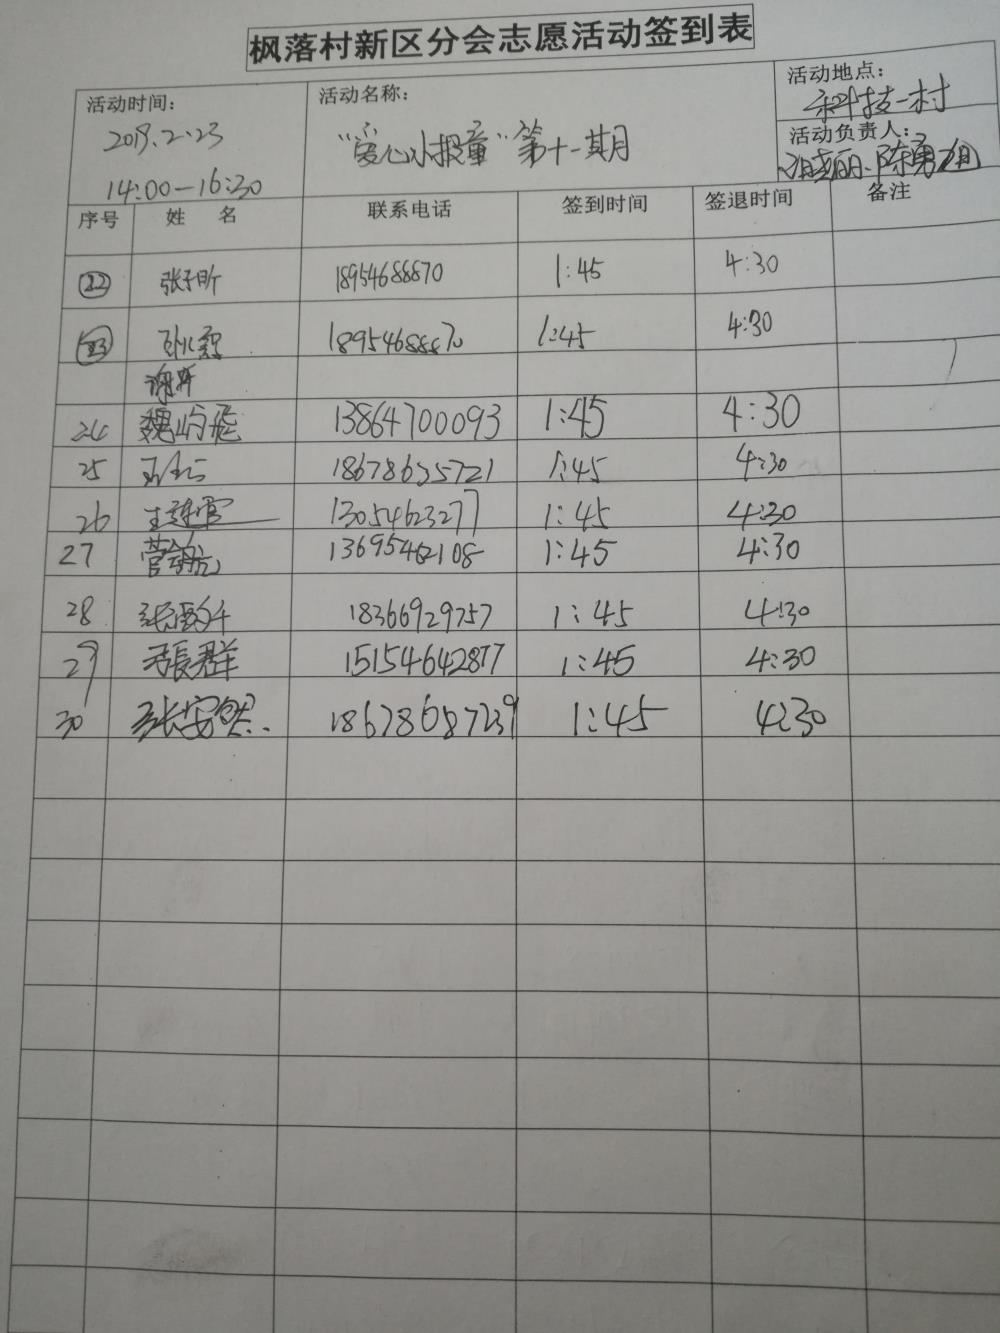 枫落村新区分会志愿活动签到表
活动时间: 活动名称: 活动地点:
2019.2.23 "爱心小报童"第十一期月 科技一村
14:00—16:30 活动负责人: 陈勇
序号 姓名 联系电话 签到时间 签退时间 备注
22 张子昕 18954688870 1:45 4:30
23 18954688870 1:45 4:30
24 魏屿飞 13864700093 1:45 4:30
25 18678635721 1:45 4:30
26 王建官 13054623277 1:45 4:30
27 菅航 13695462108 1:45 4:30
28 18366929757 1:45 4:30
29 君群 15154642877 1:45 4:30
30 张安然.. 18678687239 1:45 4:30